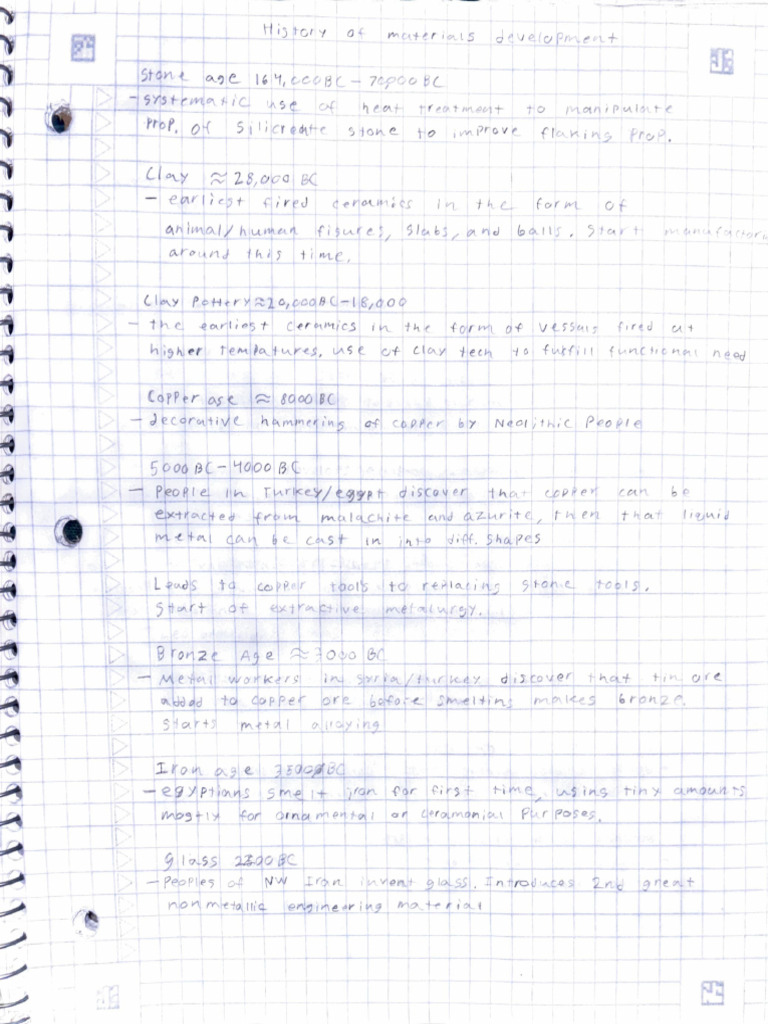 History of materials development
Stone age 164,000BC - 70,000BC
- systematic use of heat treatment to manipulate
Prop. of Silicreate stone to improve flaking Prop.
Clay ≈ 28,000 BC
- earliest fired ceramics in the form of
animal/human figures, slabs, and balls. Start
around this time.
Clay Pottery ≈ 20,000BC-18,000
- the earliest ceramics in the form of vessals fired at
higher tempatures. use of clay tech to fulfill functional need
Copper age ≈ 8000 BC
- decorative hammering of copper by Neolithic People
5000 BC - 4000 BC
- People in Turkey/egypt discover that copper can be
extracted from malachite and azurite, then that liquid
metal can be cast in into diff. shapes
Leads to copper tools to replacing stone tools.
Start of extractive metalurgy.
Bronze Age ≈ 3000 BC
- Metal workers in syria/turkey discover that tin ore
added to copper ore before smelting makes bronze.
Starts metal alloying
Iron age BC
- egyptians smelt iron for first time, using tiny amounts
mostly for ornamental or ceramonial Purposes.
glass 2200 BC
- Peoples of NW Iran invent glass. Introduces 2nd great
nonmetallic engineering material